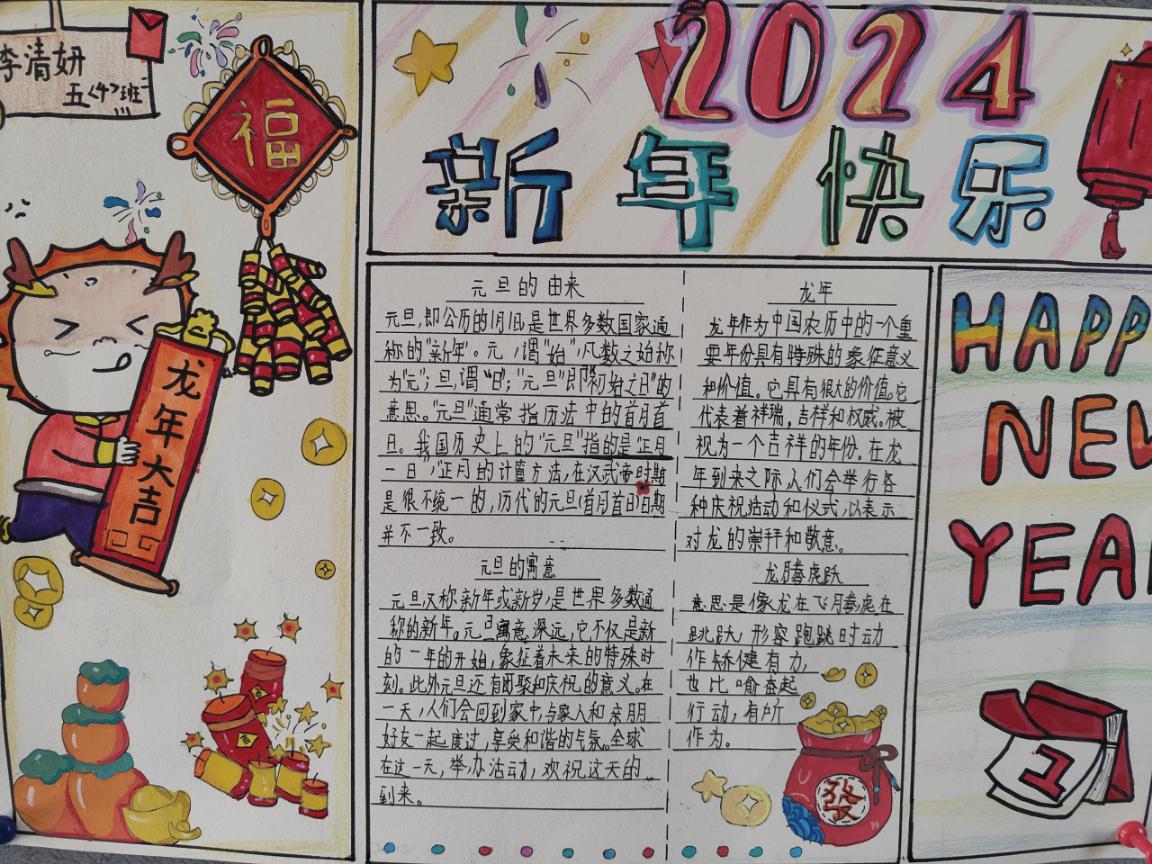 李清妍
五〈4〉班
福
龙年大吉
2024
新年快乐
元旦的由来
元旦,即公历的1月1日,是世界多数国家通
称的"新年"。元,谓"始",凡数之始称
为"元";旦,谓"日";"元旦"即"初始之日"的
意思。"元旦"通常指历法中的首月首
日。我国历史上的"元旦"指的是"正月
一日",正月的计算方法,在汉武帝时期
是很不统一的,历代的元旦(首月首日)日期
并不一致。
元旦的寓意
元旦又称新年或新岁,是世界多数通
称的新年。元旦寓意深远,它不仅是新
的一年的开始,象征着未来的特殊时
刻。此外元旦还有团聚和庆祝的意义。在
一天,人们会回到家中,与家人和亲朋
好友一起度过,享受和谐的气氛。全球
在这一天,举办活动,欢祝这天的
到来。
龙年
龙年作为中国农历中的一个重
要年份具有特殊的象征意义
和价值。它具有很大的价值。它
代表着祥瑞,吉祥和权威。被
视为一个吉祥的年份。在龙
年到来之际,人们会举行各
种庆祝活动和仪式,以表示
对龙的崇拜和敬意。
龙腾虎跃
意思是像龙在飞腾虎在
跳跃,形容跑跳时动
作矫健有力,
也比喻奋起
行动,有所
作为。
發
HAPP
NEW
YEA
1